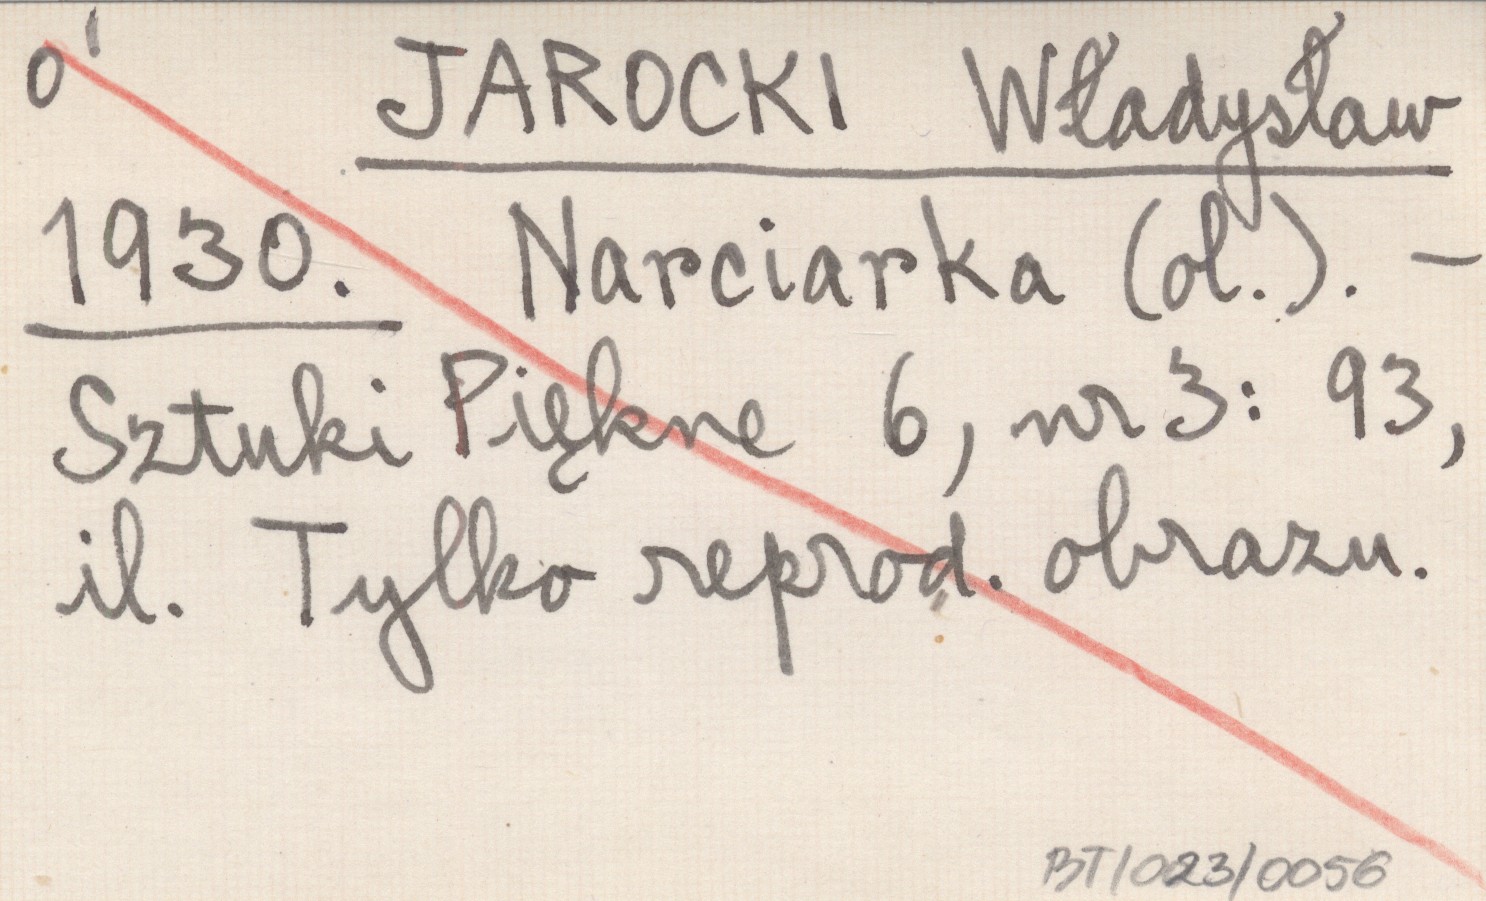 o'
JAROCKI Władysław
1930. Narciarka (ol.). –
Sztuki Piękne 6, nr 3: 93,
il. Tylko reprod. obrazu.
BT/023/0056